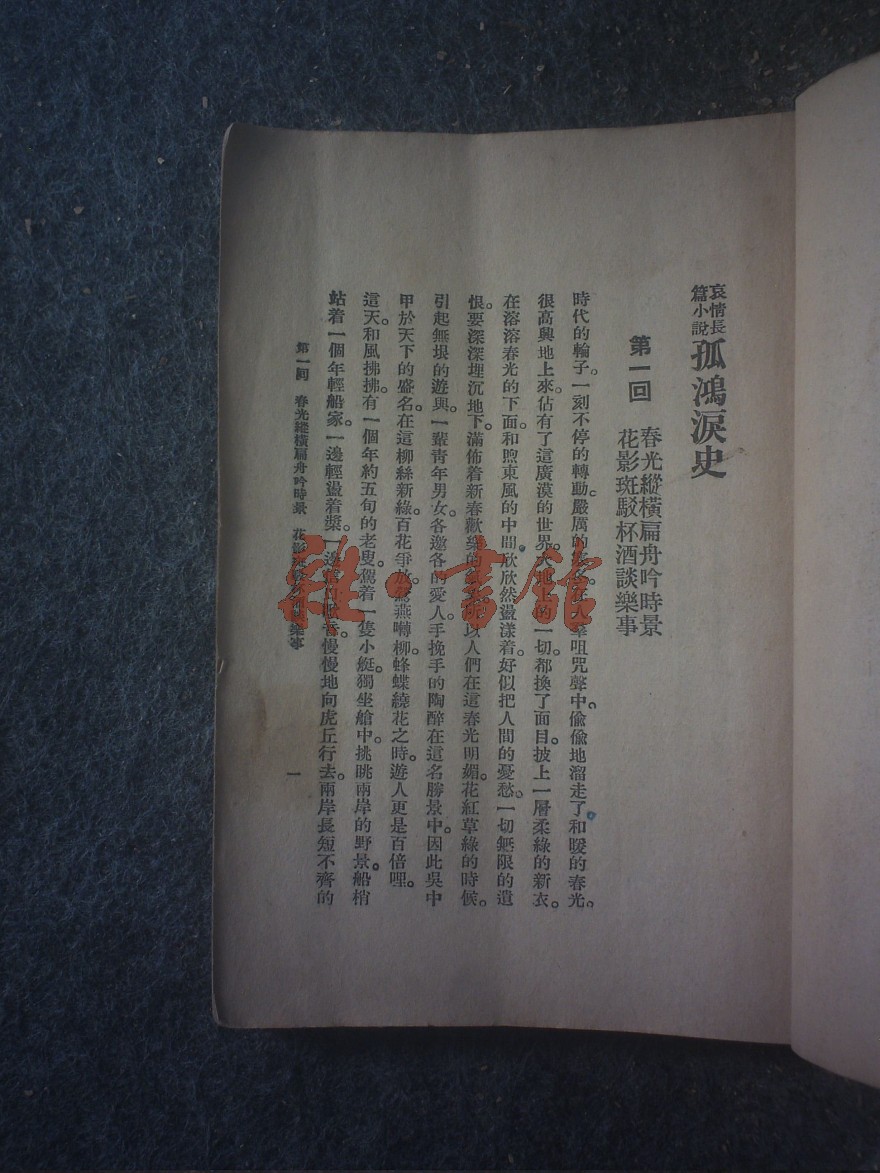 哀情長
篇小說
孤鴻淚史
第一回
春光縱橫扁舟吟時景
花影斑駁杯酒談樂事
時代的輪子。一刻不停的轉動。嚴厲的人羣咀咒聲中。偷偷地溜走了。和暖的春光。
很高興地上來。佔有了這廣漠的世界。大地上的一切。都換了面目。披上一層柔綠的新衣。
在溶溶春光的下面。和煦東風的中間。欣欣然盪漾着。好似把人間的憂愁。一切無限的遺
恨。要深深埋沉地下。滿佈着新春歡樂的人們在這春光明媚。花紅草綠的時候。
引起無垠的遊興。一輩青年男女。各邀各的愛人。手挽手的陶醉在這名勝景中。因此吳中
甲於天下的盛名。在這柳絲新綠。百花爭放。鶯燕囀柳。蜂蝶繞花之時。遊人更是百倍哩。
這天和風拂拂。有一個年約五旬的老叟。駕着一隻小艇。獨坐艙中。挑眺兩岸的野景。船梢
站着一個年輕船家。一邊輕盪着槳。一邊慢慢地向虎丘行去。兩岸長短不齊的
第一回 春光縱橫扁舟吟時景 花影樂事
一
雜·書館